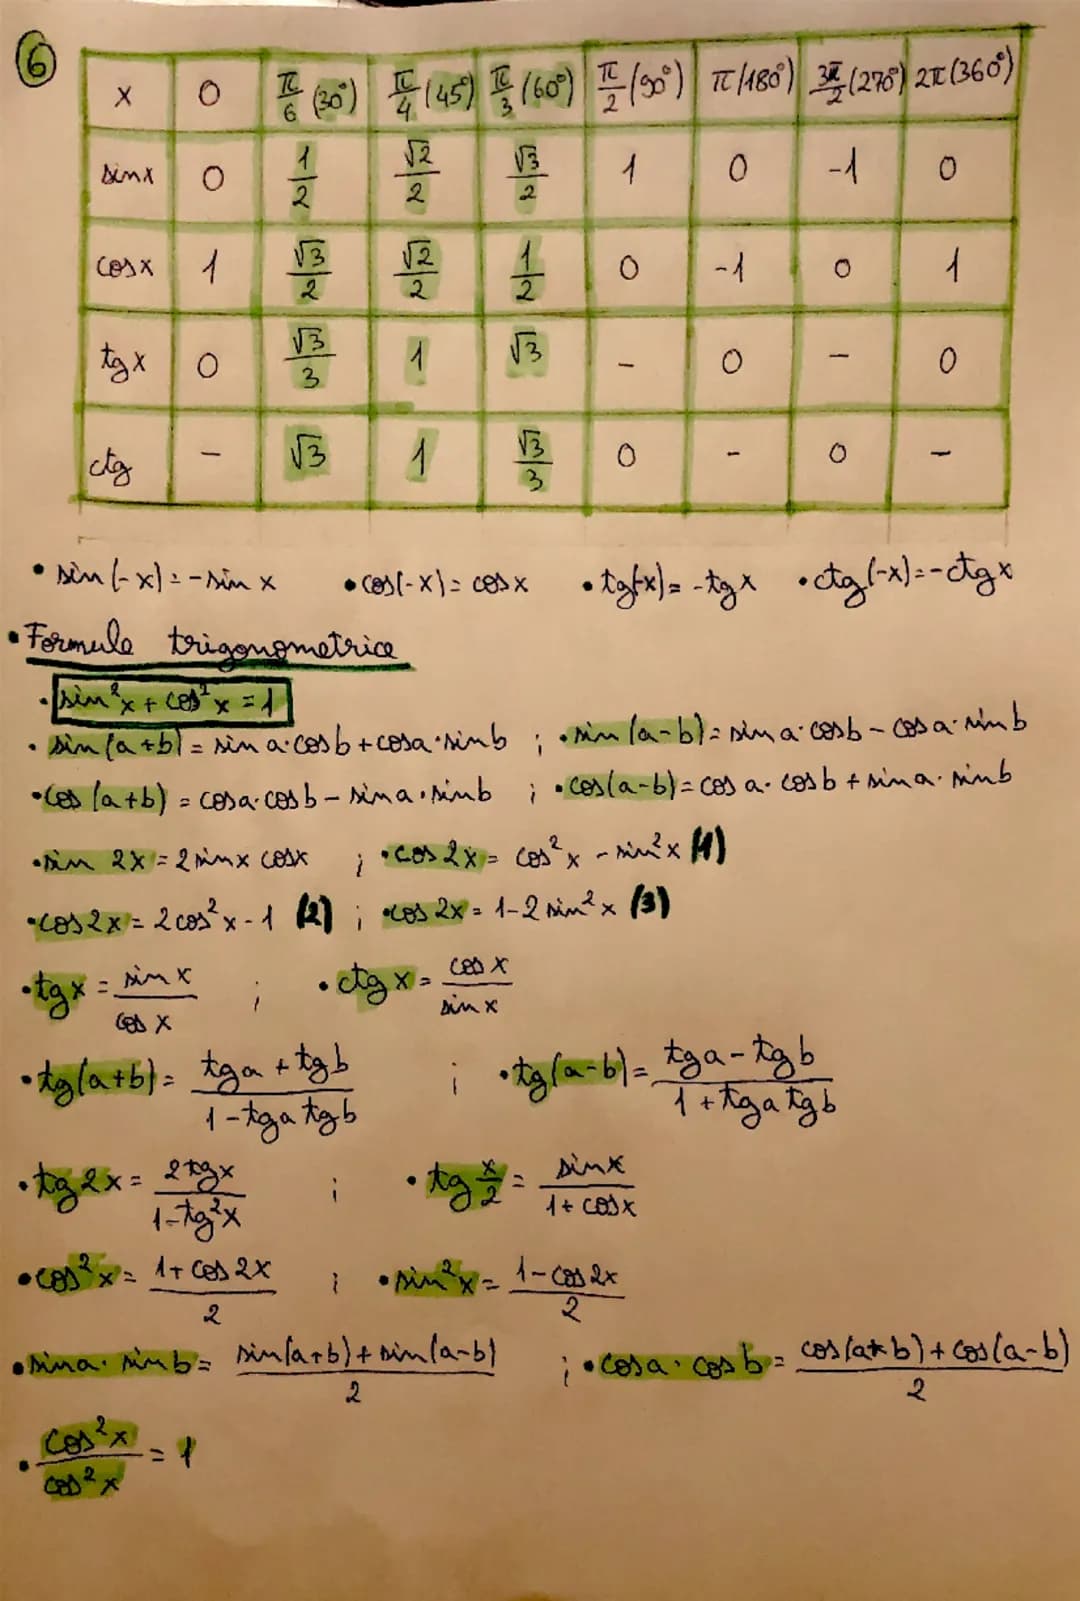 6
x 0 π/6 (30°) π/4 (45°) π/3 (60°) π/2 (90°) π (180°) 3π/2 (270°) 2π (360°)
sin x 0 1/2 √2/2 √3/2 1 0 -1 0
cos x 1 √3/2 √2/2 1/2 0 -1 0 1
tg x 0 √3/3 1 √3 - 0 - 0
ctg - √3 1 √3/3 0 - 0 -
• sin(-x) = -sin x • cos(-x) = cos x • tg(-x) = -tg x • ctg(-x) = -ctg x
• Formule trigonometrice
• sin²x + cos²x = 1
• sin(a+b) = sin a·cos b + cos a·sin b ; • sin(a-b) = sin a·cos b - cos a·sin b
• cos(a+b) = cos a·cos b - sin a·sin b ; • cos(a-b) = cos a·cos b + sin a·sin b
• sin 2x = 2 sin x cos x ; • cos 2x = cos²x - sin²x (1)
• cos 2x = 2cos²x - 1 (2) ; • cos 2x = 1 - 2 sin²x (3)
• tg x = sin x / cos x ; • ctg x = cos x / sin x
• tg(a+b) = tg a + tg b / 1 - tg a tg b ; • tg(a-b) = tg a - tg b / 1 + tg a tg b
• tg 2x = 2tg x / 1 - tg²x ; • tg x/2 = sin x / 1 + cos x
• cos²x = 1 + cos 2x / 2 ; • sin²x = 1 - cos 2x / 2
• sin a · sin b = sin(a+b) + sin(a-b) / 2 ; • cos a · cos b = cos(a+b) + cos(a-b) / 2
• cos²x / cos²x = 1